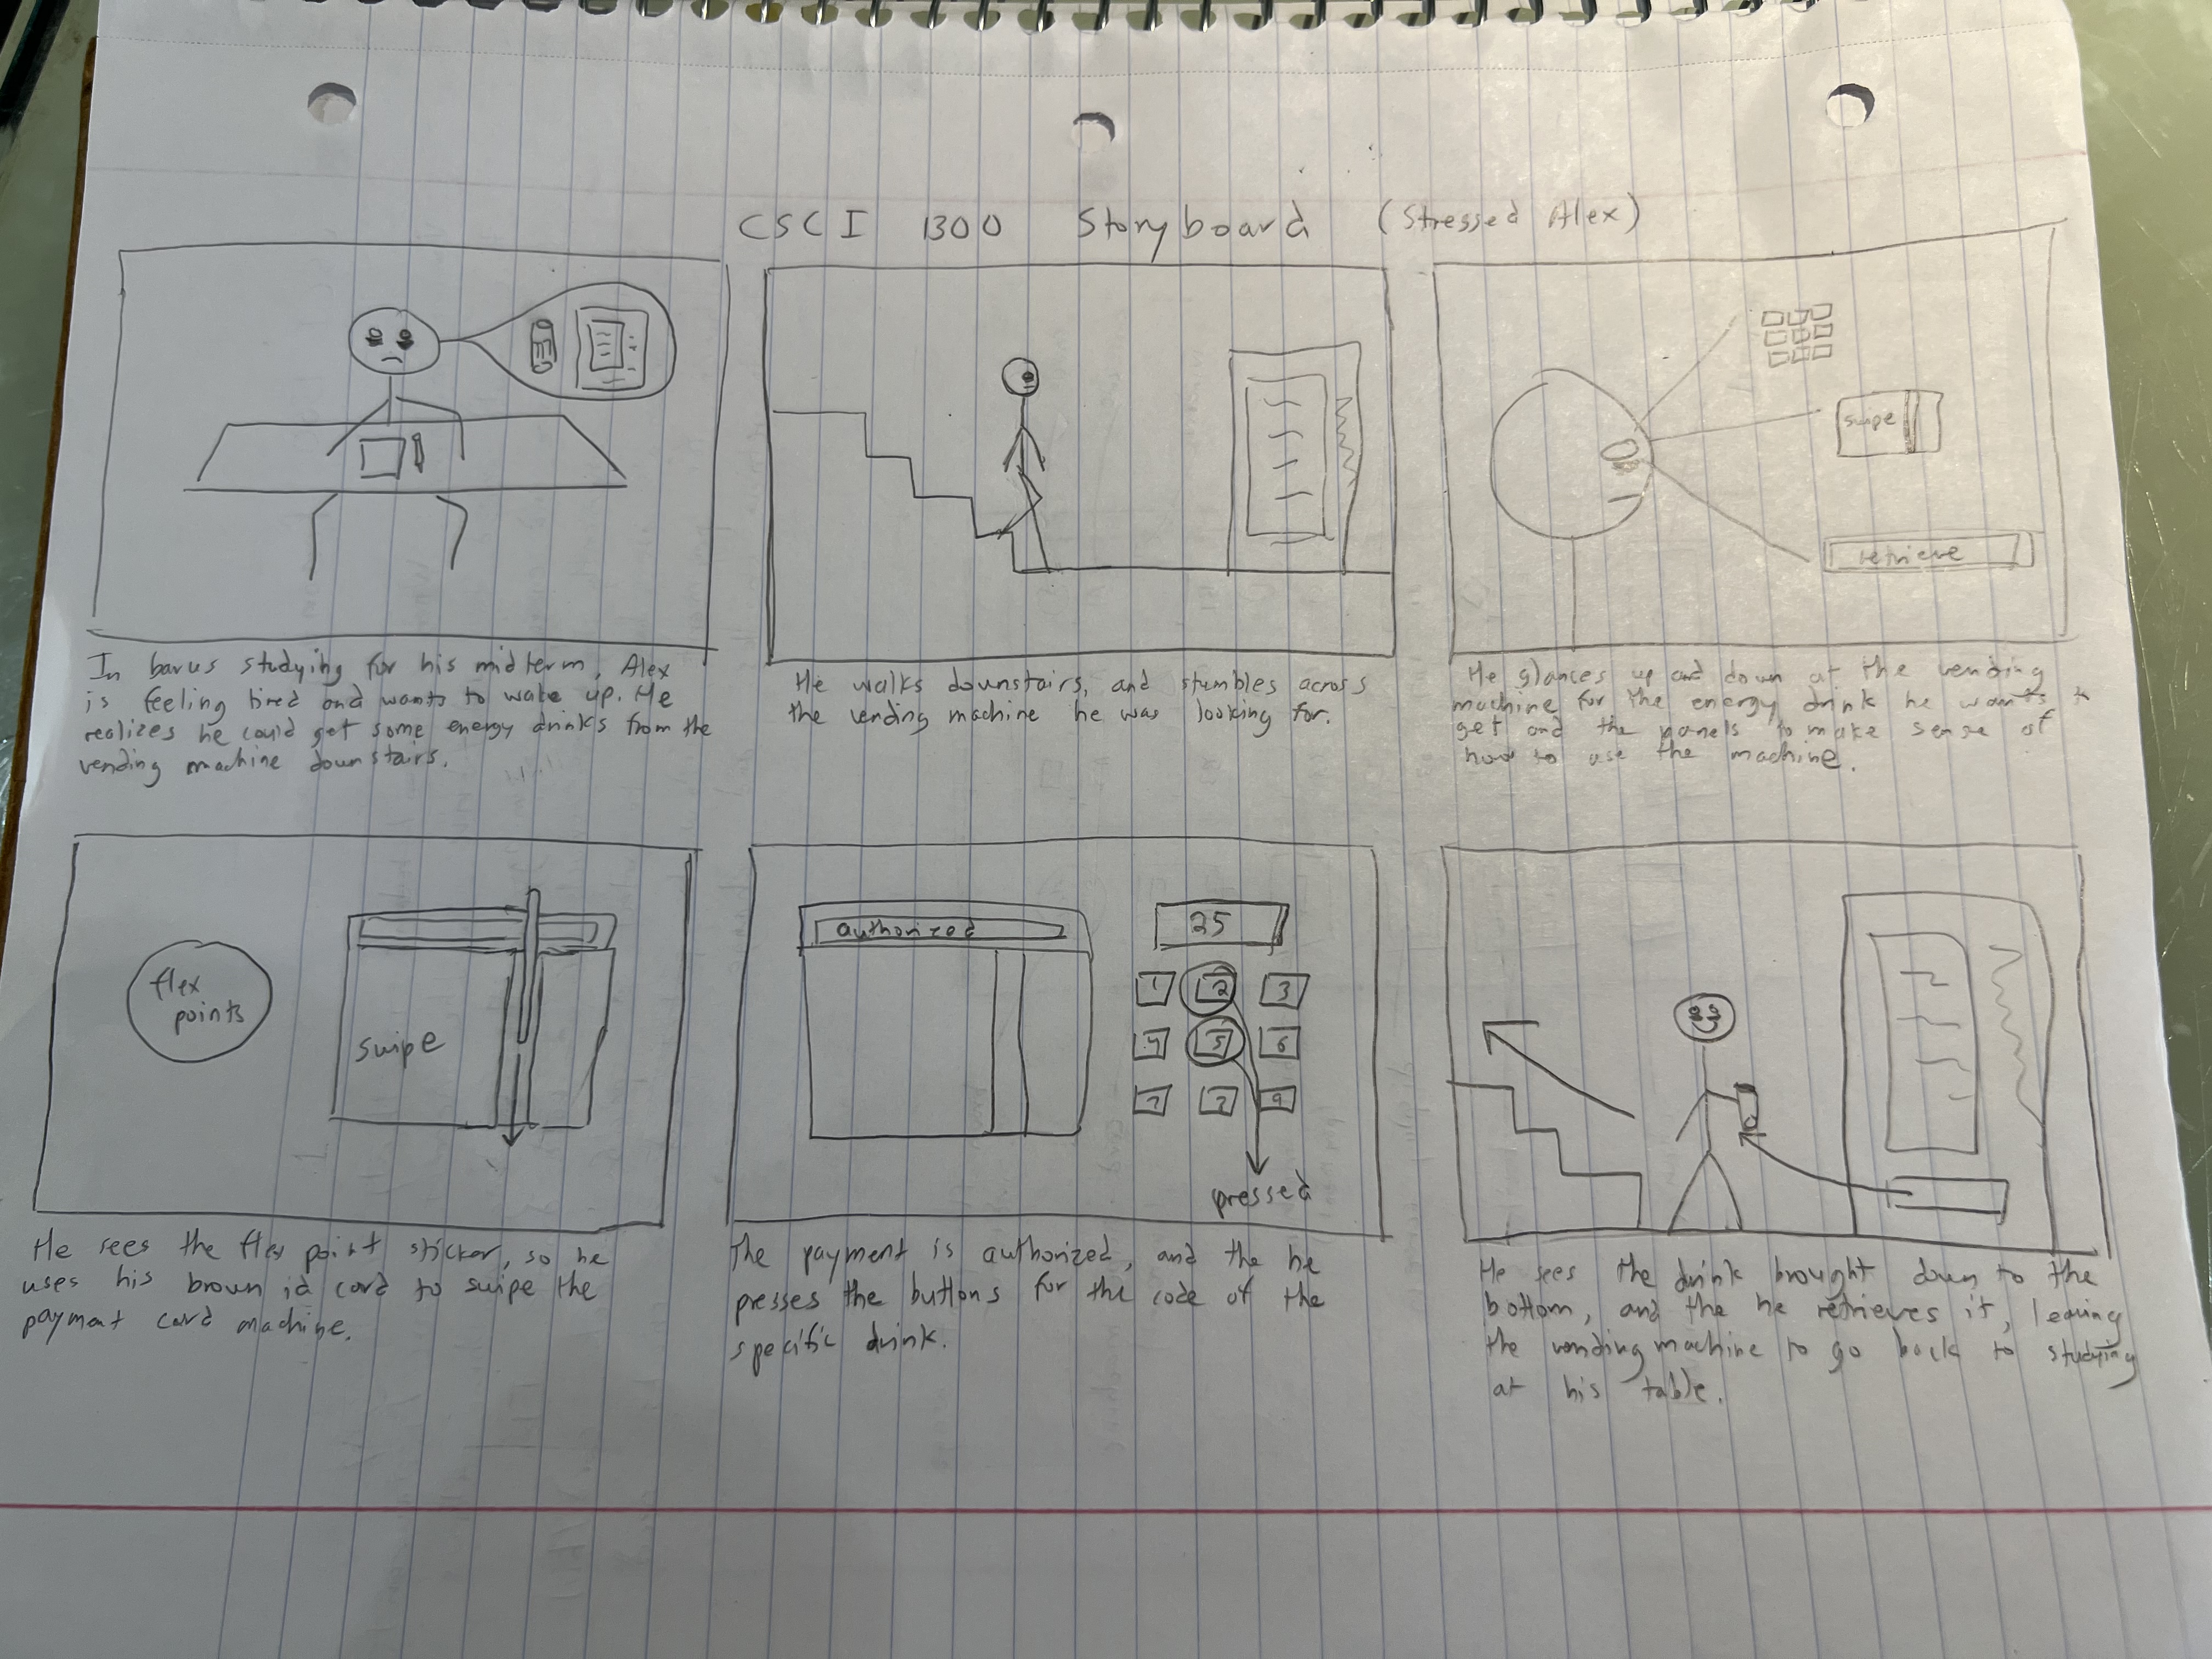 CSCI 1300 Storyboard (Stressed Alex)
In barus studying for his midterm, Alex
is feeling tired and wants to wake up. He
realizes he could get some energy drinks from the
vending machine downstairs.
He walks downstairs, and stumbles across
the vending machine he was looking for.
swipe
retrieve
He glances up and down at the vending
machine for the energy drink he wants to
get and the panels to make sense of
how to use the machine.
flex
points
swipe
He sees the flex point sticker, so he
uses his brown id card to swipe the
payment card machine.
authorized
25
1 2 3
4 5 6
7 9
pressed
The payment is authorized, and the he
presses the buttons for the code of the
specific drink.
He sees the drink brought down to the
bottom, and the he retrieves it, leaving
the vending machine to go back to studying
at his table.